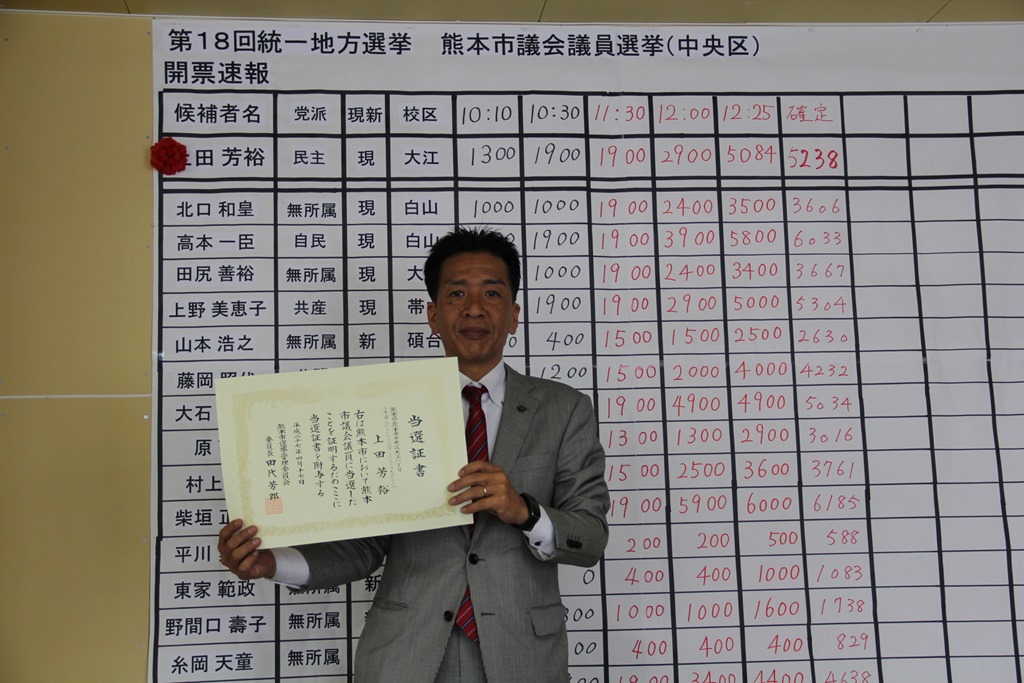 第18回統一地方選挙　熊本市議会議員選挙(中央区)
開票速報
候補者名 党派 現新 校区 10:10 10:30 11:30 12:00 12:25 確定
田 芳裕 民主 現 大江 1300 1900 1900 2900 5084 5238
北口 和皇 無所属 現 白山 1000 1000 1900 2400 3500 3606
高本 一臣 自民 現 白山 1900 1900 3900 5800 6033
田尻 善裕 無所属 現 大 1000 1900 2400 3400 3667
上野 美恵子 共産 現 帯 1900 1900 2900 5000 5304
山本 浩之 無所属 新 碩台 400 1500 1500 2500 2630
藤岡 1200 1500 2000 4000 4232
大石 1900 4900 4900 5034
原 1300 1300 2900 3016
村上 1500 2500 3600 3761
柴垣 1900 5900 6000 6185
平川 200 200 500 588
東家 範政 無所属 新 0 400 400 1000 1083
野間口 壽子 無所属 00 1000 1000 1600 1738
糸岡 天童 無所属 00 400 400 400 829
1900 3400 4400 4638
当選証書
上田 芳裕
右は熊本市において熊本
市議会議員に当選した
ことを証明するためここに
当選証書を附与する
平成二十七年四月十七日
熊本市選挙管理委員会
委員長 田代 芳郎